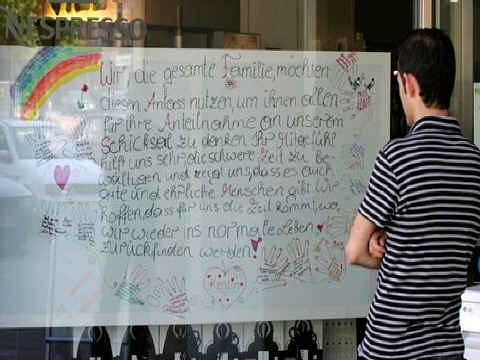 NESPRESSO
Wir, die gesamte Familie, möchten
diesen Anlass nutzen, um ihnen allen
für ihre Anteilnahme an unserem
Schicksal zu danken. Ihr Mitgefühl
hilft uns sehr, die schwere Zeit zu be-
wältigen und zeigt uns, dass es auch
gute und ehrliche Menschen gibt. Wir
hoffen, dass für uns die Zeit kommt, wo
wir wieder ins normale Leben
zurückfinden werden!